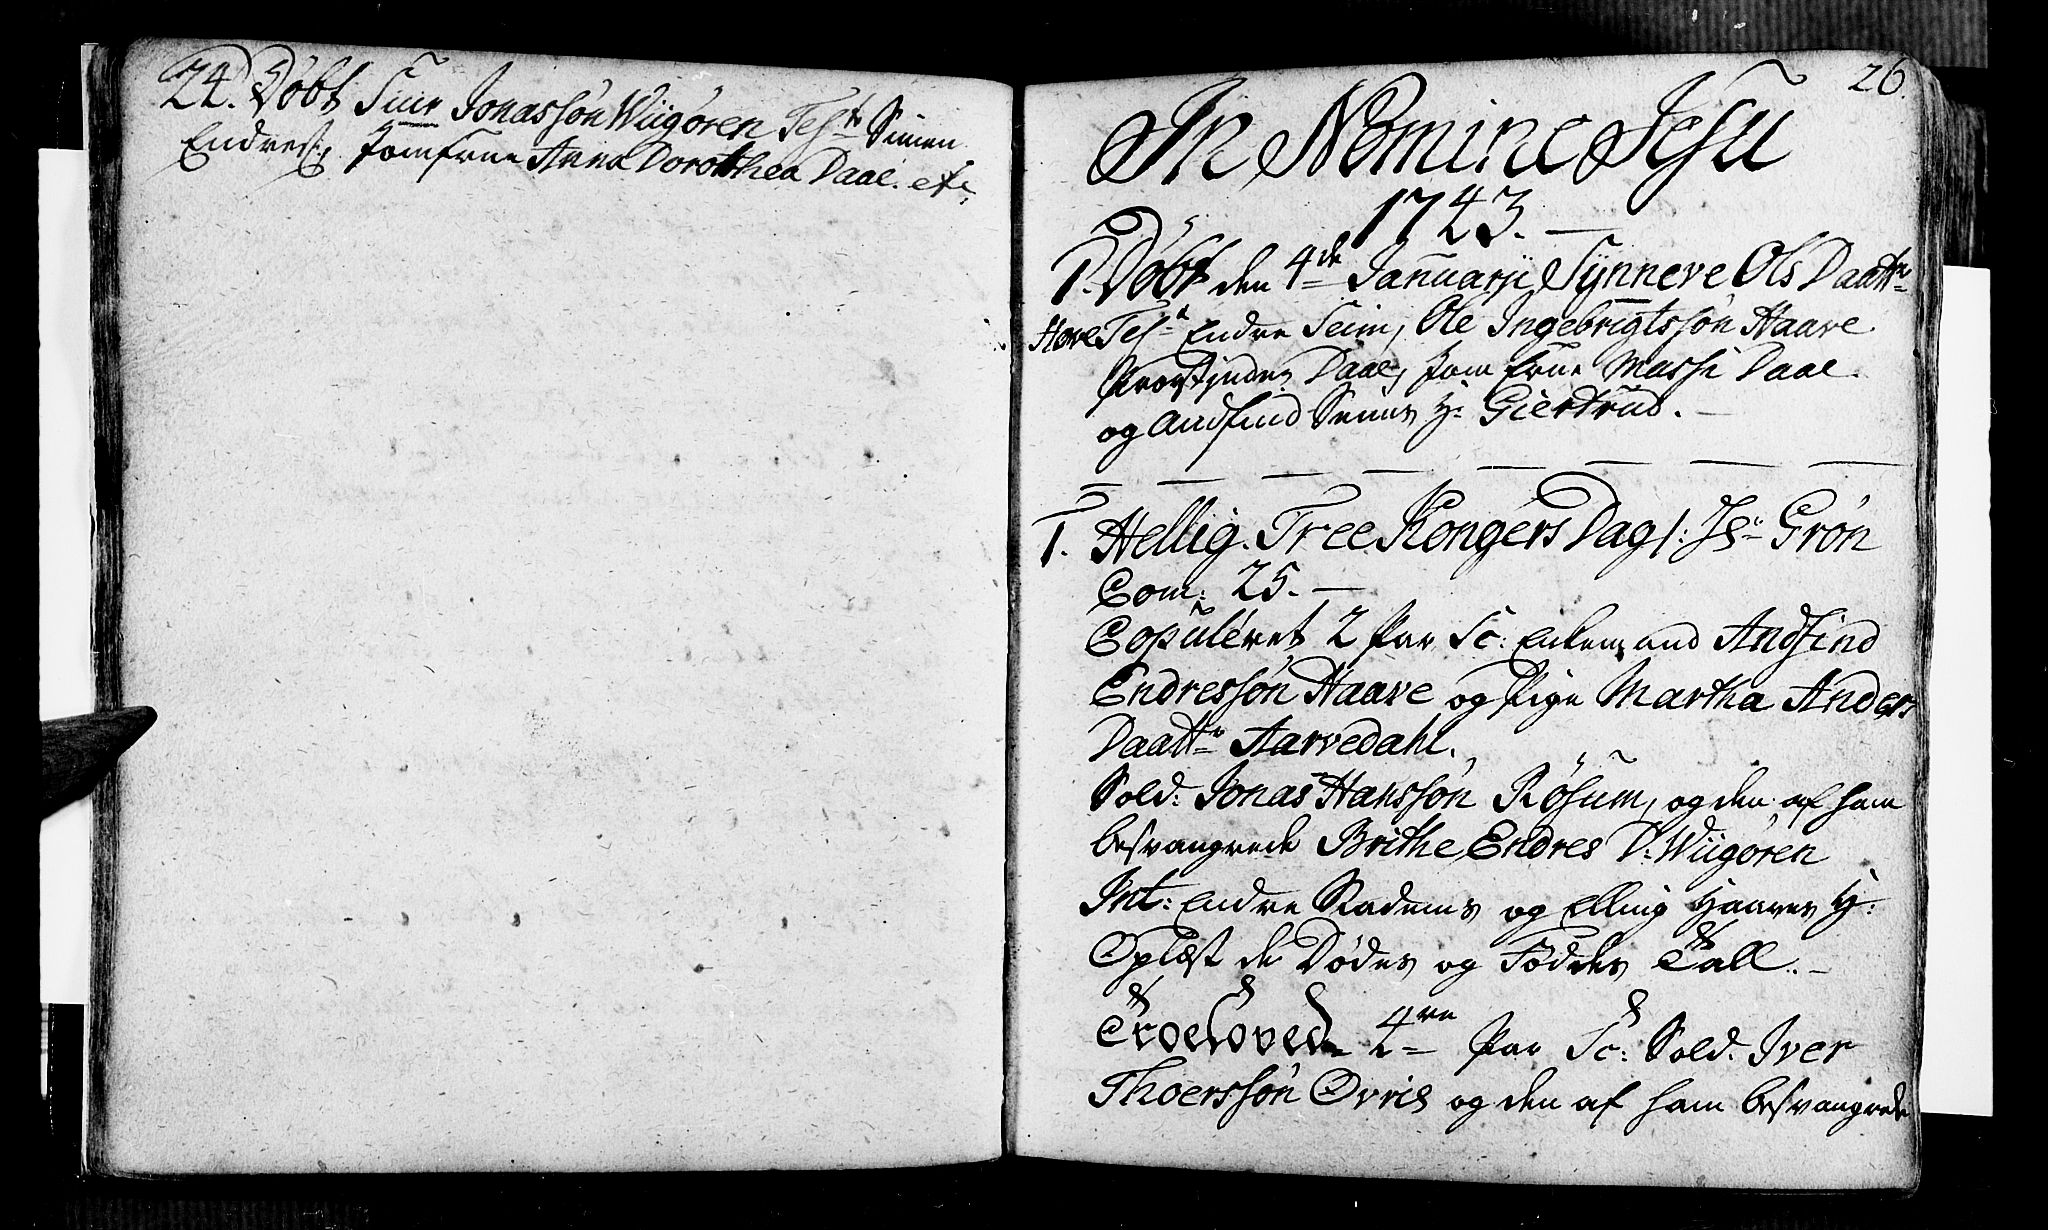 24. Døbt Siur Jonassøn Wiigøren Test: Simen
Endres: Jomfrue Anna Dorothea Daae. etc,
26.
In Nomine Jesu
1743. —
1. Døbt den 4de Januarii Synneve Ols Daattr
Hove Test: Endre Seim, Ole Ingebrigtssøn Haave
Provstinde Daae, Jomfrue Massi Daae
og Andfind Seims H: Giertrud. —
1. Hellig. Tree Kongers Dag /: Js: Grøn
Com: 25. —
Copuleret 2 Par Sc: Enkemand Andfind
Endressøn Haave og Pige Martha Anders
Daattr Aarvedahl.
Sold: Jonas Hanssøn Røsum, og den af ham
besvangrede Brithe Endres D: Wiigøren
Int: Endre Stadems og Elling Haaves H:
Oplæst de Dødes og Føddes Tall. —
Troeloved 4re Par Sc: Sold. Iver
Thoerssøn Øvris og den af ham besvangrede